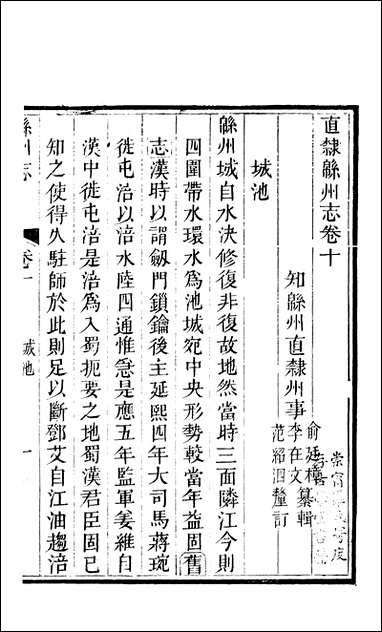 直隸緜州志卷十
知緜州直隸州事
俞廷樟
李在文 纂輯
范紹泗 釐訂
城池
緜州城自水決修復非復故地然當時三面隣江今則
四圍帶水環水爲池城宛中央形勢較當年益固舊
志漢時以謂劔門鎖鑰後主延熙四年大司馬蔣琬
徙屯涪以涪水陸四通惟急是應五年監軍姜維自
漢中徙屯涪是涪爲入蜀扼要之地蜀漢君臣固已
知之使得久駐師於此則足以斷鄧艾自江油趨涪
緜州志
卷十
城池
一